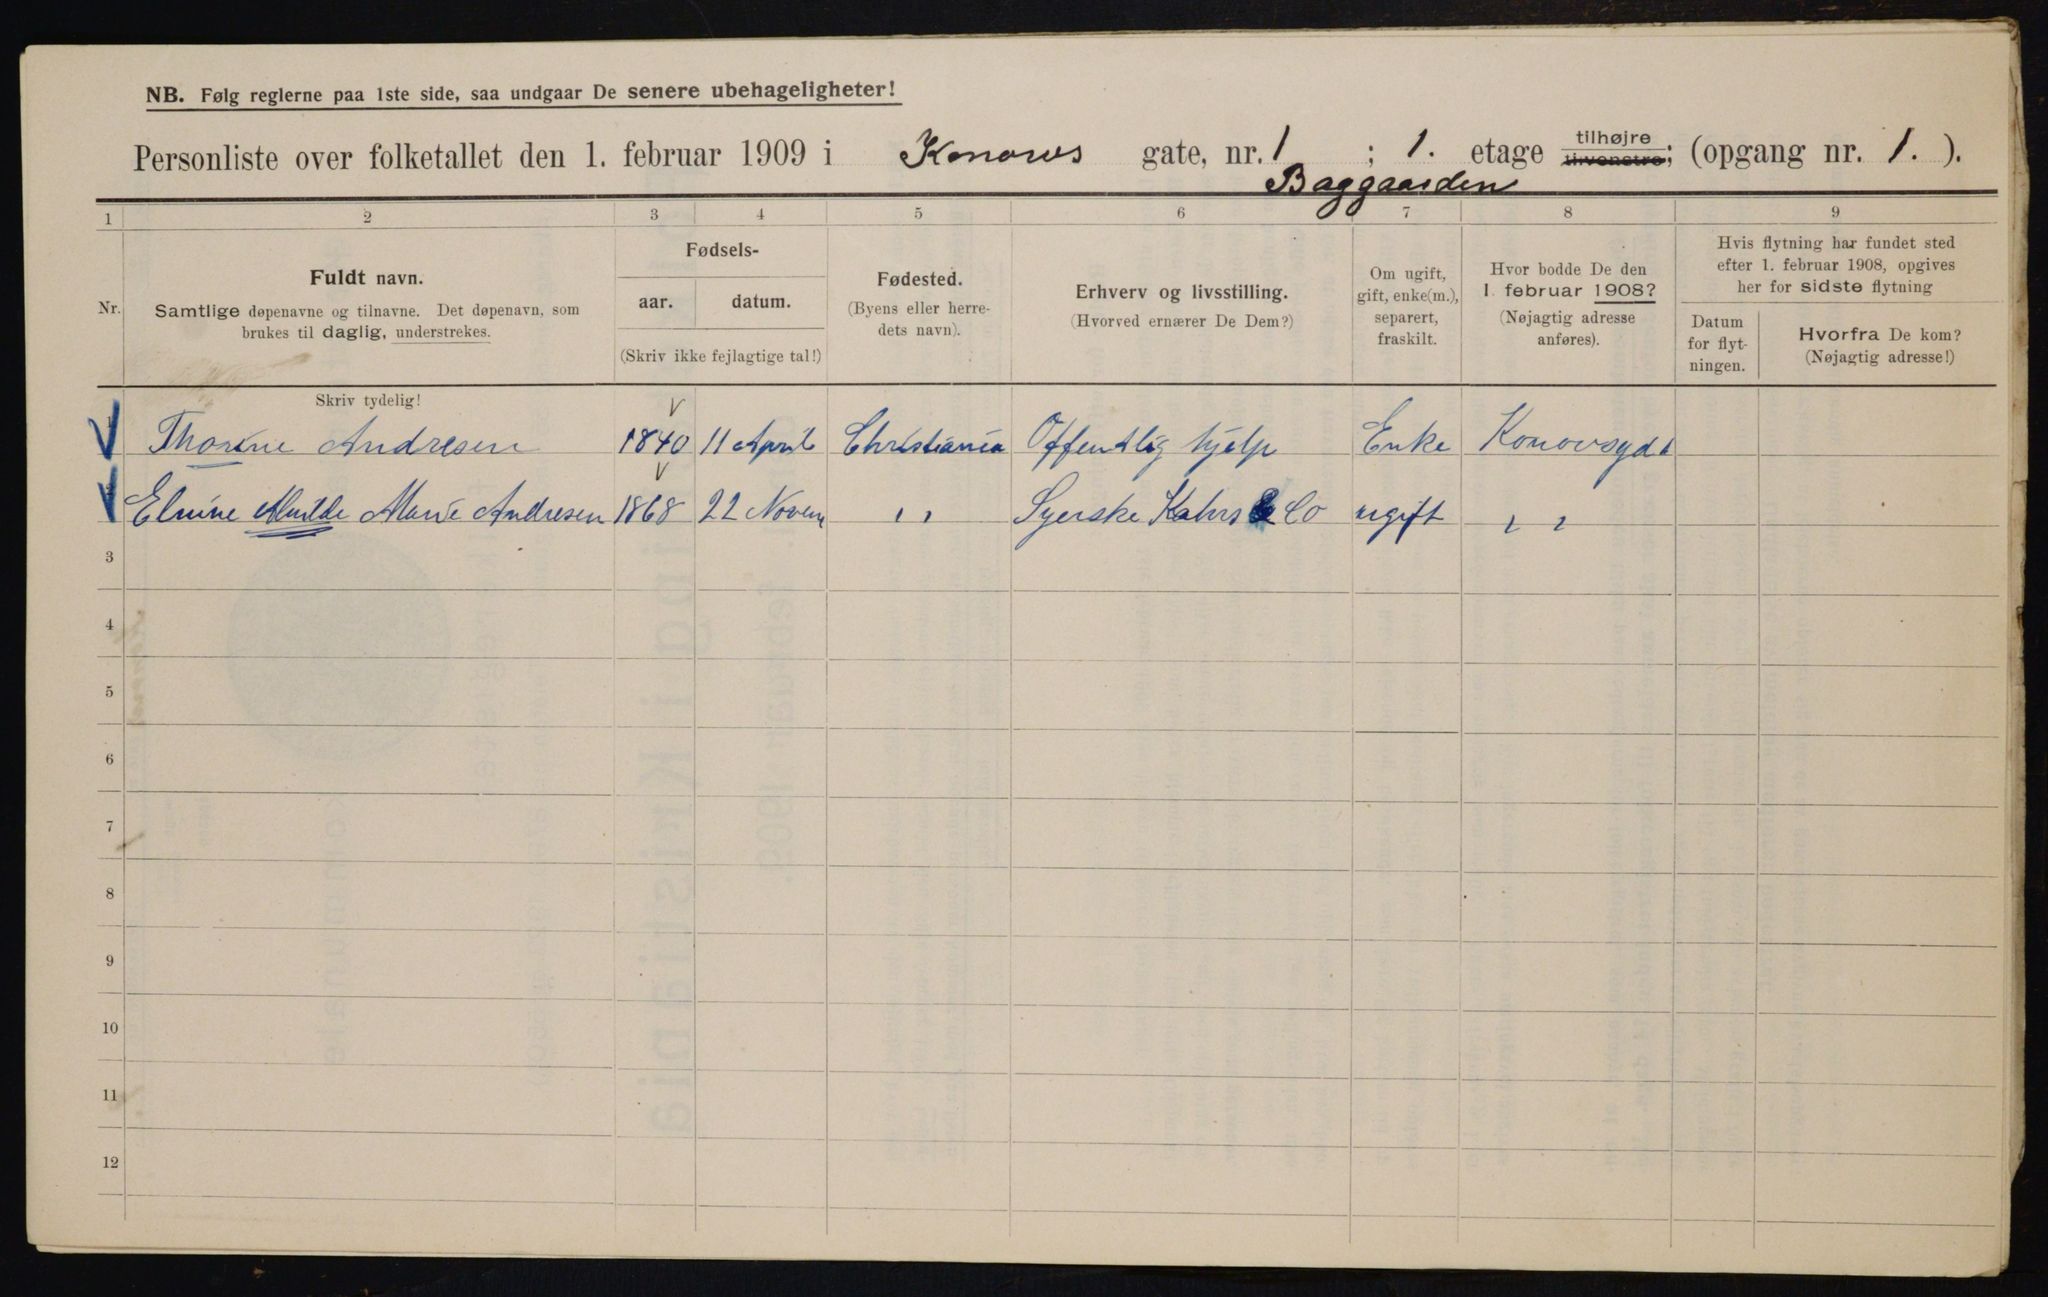 NB. Følg reglerne paa 1ste side, saa undgaar De senere ubehageligheter!
Personliste over folketallet den 1. februar 1909 i Konows gate, nr. 1 ; 1. etage tilhøjre tilvenstre; (opgang nr. 1. ).
Baggaarden
1 2 3 4 5 6 7 8 9
Nr.
Fuldt navn.
Samtlige døpenavne og tilnavne. Det døpenavn, som
brukes til daglig, understrekes.
Skriv tydelig!
Fødsels-
aar. datum.
(Skriv ikke fejlagtige tal!)
Fødested.
(Byens eller herre-
dets navn).
Erhverv og livsstilling.
(Hvorved ernærer De Dem?)
Om ugift,
gift, enke(m.),
separert,
fraskilt.
Hvor bodde De den
1. februar 1908?
(Nøjagtig adresse
anføres).
Hvis flytning har fundet sted
efter 1. februar 1908, opgives
her for sidste flytning
Datum
for flyt-
ningen.
Hvorfra De kom?
(Nøjagtig adresse!)
Thorine Andresen 1840 11 April Christiania Offentlig hjelp Enke Konovsgd 1
Marie Andresen 1868 22 Novem " Syerske Kahrs & Co ugift "
3
4
5
6
7
8
9
10
11
12